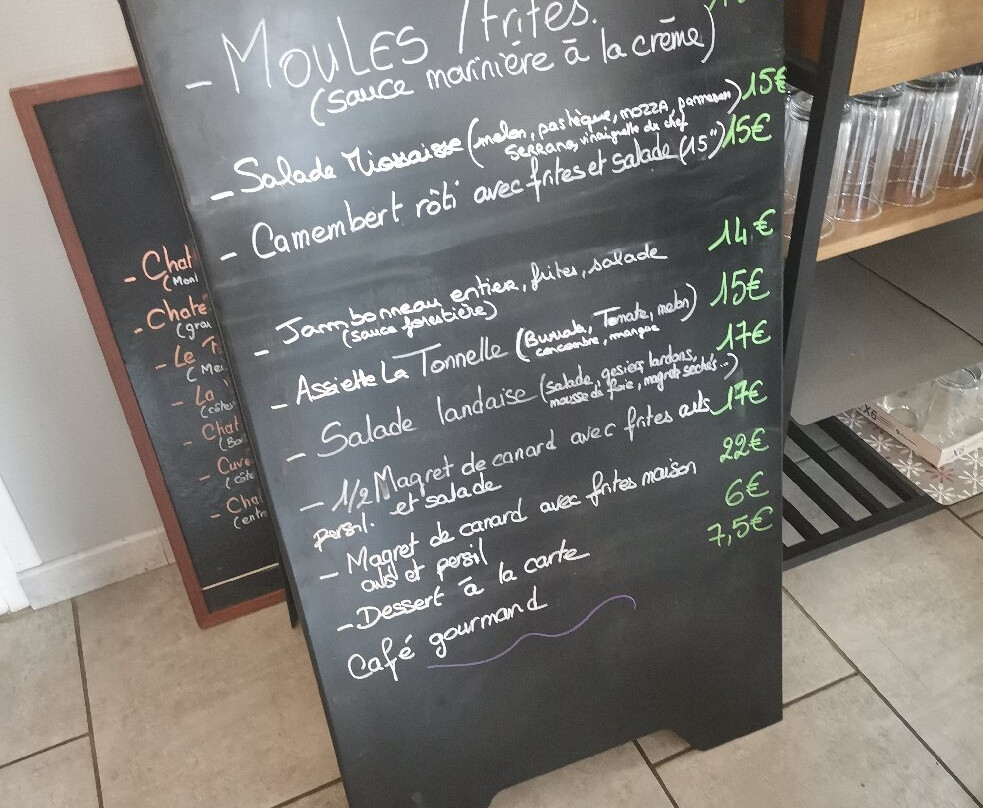 - MOULES / frites.
(sauce marinière à la crème)
- Salade (melon, pastèque, mozza, parmesan) 15€
serrano, vinaigrette du chef
- Camembert rôti avec frites et salade (15") 15€
- Jambonneau entier, frites, salade 14€
(sauce forestière)
- Assiette La Tonnelle (Burrata, Tomate, melon) 15€
concombre, mangue
- Salade landaise (salade, gesiers lardons, 17€
mousse de foie, magret séchés...)
- 1/2 Magret de canard avec frites ails 17€
persil. et salade
- Magret de canard avec frites maison 22€
ails et persil
- Dessert à la carte 6€
Café gourmand 7,5€
- Chat
- Chate
(grav
- Le
(Me
- La
(côtes
- Chat
(Bor
- Cuve
(côte
- Cha
(entre
X6